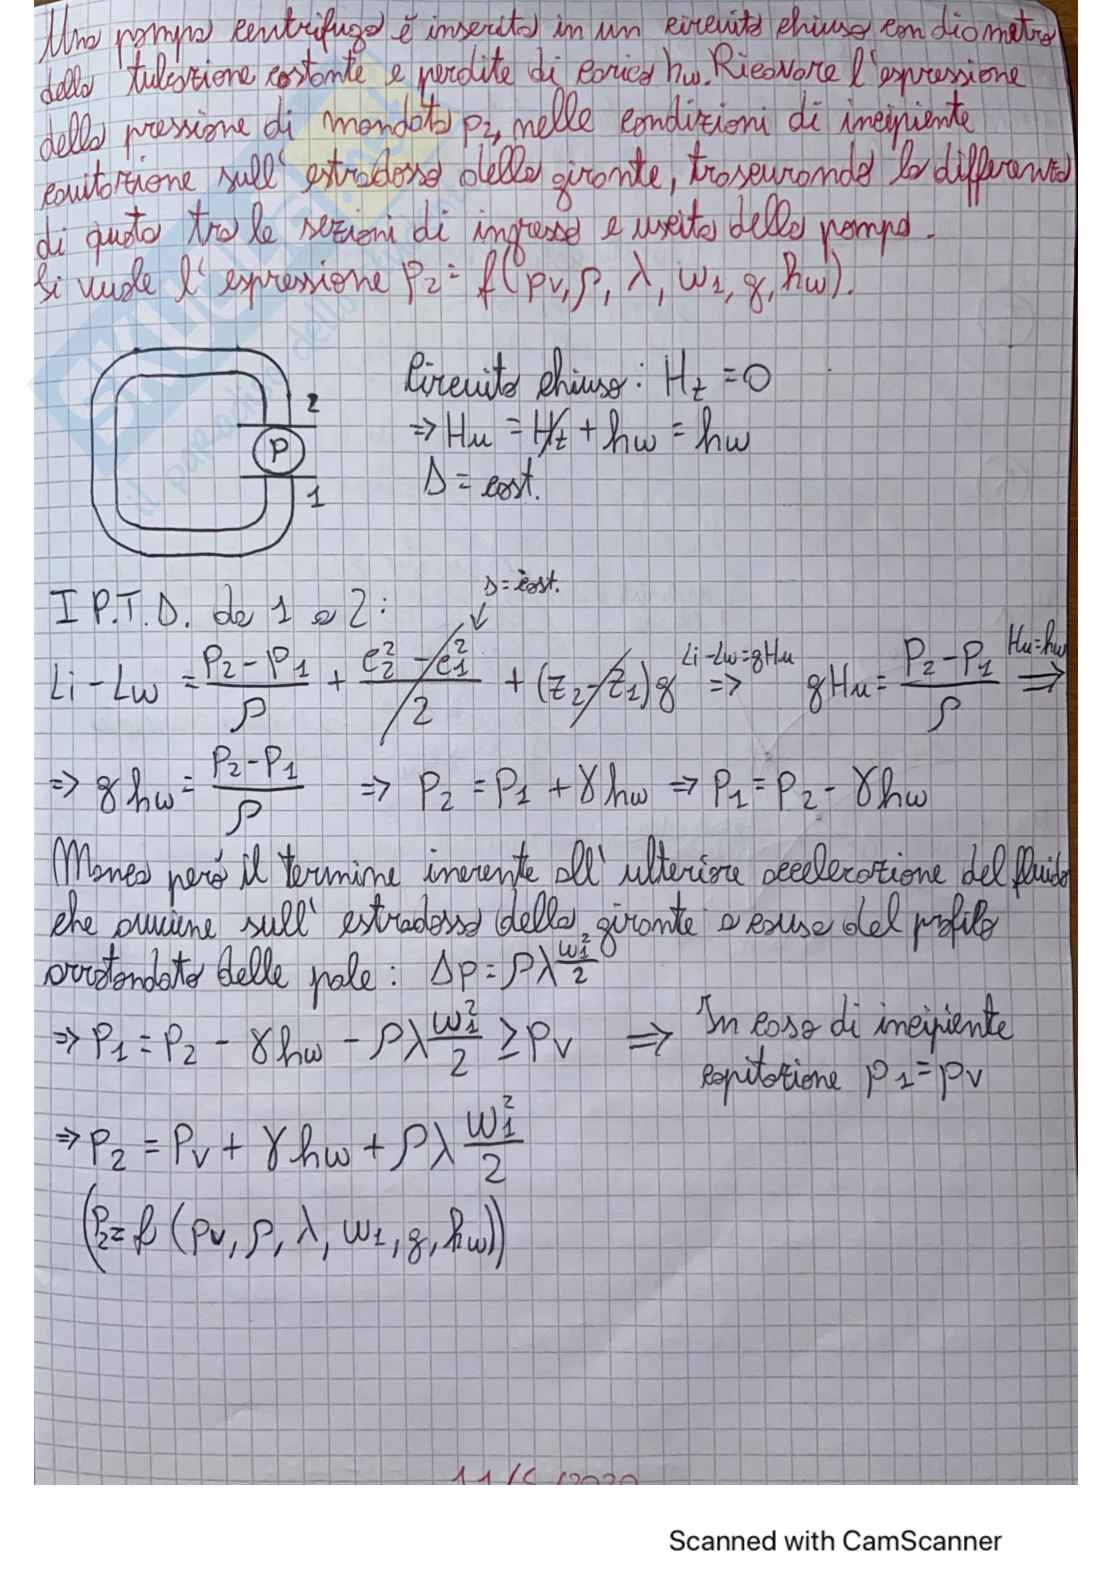 Una pompa centrifuga è inserita in un circuito chiuso con diametro
della tubazione costante e perdite di carico hw. Ricavare l'espressione
della pressione di mandata p2, nelle condizioni di incipiente
cavitazione sull'estradosso della girante, trascurando la differenza
di quota tra le sezioni di ingresso e uscita della pompa.
Si vuole l'espressione p2 = f(pv, ρ, λ, w1, g, hw).
Circuito chiuso: Ht = 0
2
⇒ Hu = Ht + hw = hw
P
D = cost.
1
D = cost.
I P.T.D. da 1 a 2:
Li - Lw = (P2 - P1)/ρ + (c2² - c1²)/2 + (z2 - z1)g Li - Lw = gHu ⇒ gHu = (P2 - P1)/ρ Hu = hw ⇒
⇒ g hw = (P2 - P1)/ρ ⇒ P2 = P1 + γhw ⇒ P1 = P2 - γhw
Manca però il termine inerente all'ulteriore accelerazione del fluido
che avviene sull'estradosso della girante a causa del profilo
arrotondato delle pale: Δp = ρλ w1²/2
⇒ P1 = P2 - γhw - ρλ w1²/2 ≥ Pv ⇒ In caso di incipiente
cavitazione p1 = pv
⇒ P2 = Pv + γhw + ρλ w1²/2
(P2 = f (pv, ρ, λ, w1, g, hw))
Scanned with CamScanner